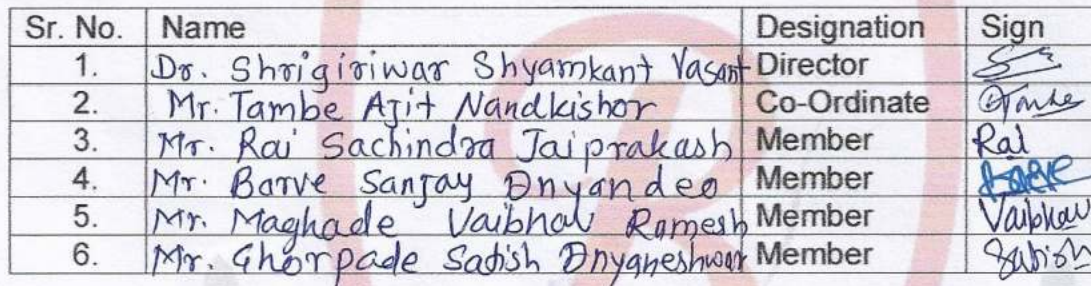 Sr. No. Name Designation Sign
1. Dr. Shrigiriwar Shyamkant Vasant Director
2. Mr. Tambe Ajit Nandkishor Co-Ordinate Tambe
3. Mr. Rai Sachindra Jaiprakash Member Rai
4. Mr. Barve Sanjay Dnyandeo Member Barve
5. Mr. Maghade Vaibhav Ramesh Member Vaibhav
6. Mr. Ghorpade Satish Dnyaneshwar Member Satish